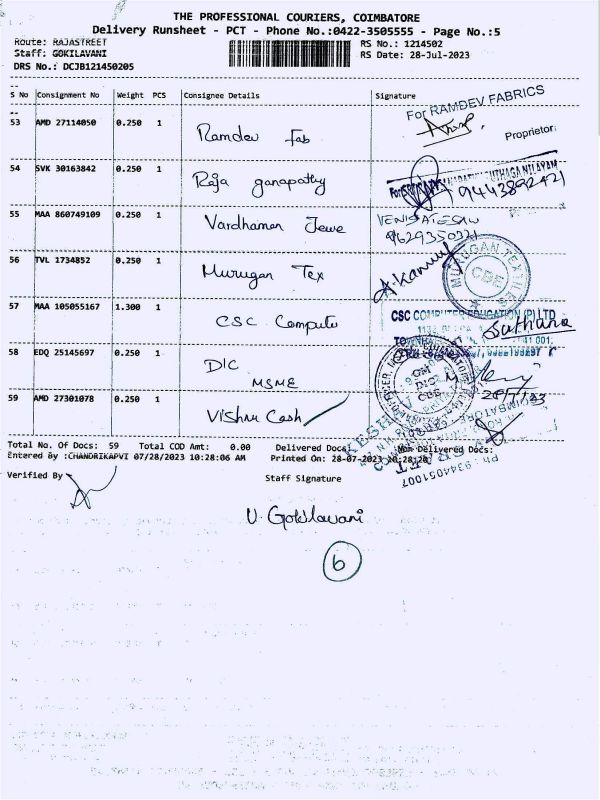 THE PROFESSIONAL COURIERS, COIMBATORE
Delivery Runsheet - PCT - Phone No.:0422-3505555 - Page No.:5
Route: RAJASTREET
RS No.: 1214502
Staff: GOKILAVANI
RS Date: 28-Jul-2023
DRS No.: DCJB121450205
S No Consignment No Weight PCS Consignee Details Signature
For RAMDEV FABRICS
53 AMD 27114050 0.250 1 Ramdev Fab
Proprietor
54 SVK 30163842 0.250 1 Raja ganapathy
55 MAA 860749109 0.250 1 Vardhaman Jewe
56 TVL 1734852 0.250 1 Murugan Tex
MURUGAN TEXTILES
CBE
57 MAA 105055167 1.300 1 CSC Compute
CSC COMPUTER EDUCATION (P) LTD
Suthana
58 EDQ 25145697 0.250 1 DIC
MSME
59 AMD 27301078 0.250 1 Vishnu Cash
Total No. Of Docs: 59 Total COD Amt: 0.00 Delivered Docs: Non Delivered Docs:
Entered By :CHANDRIKAPVI 07/28/2023 10:28:06 AM Printed On: 28-07-2023 10:28:20
Ph : 9344051007
Verified By
Staff Signature
V. Gokilavani
6